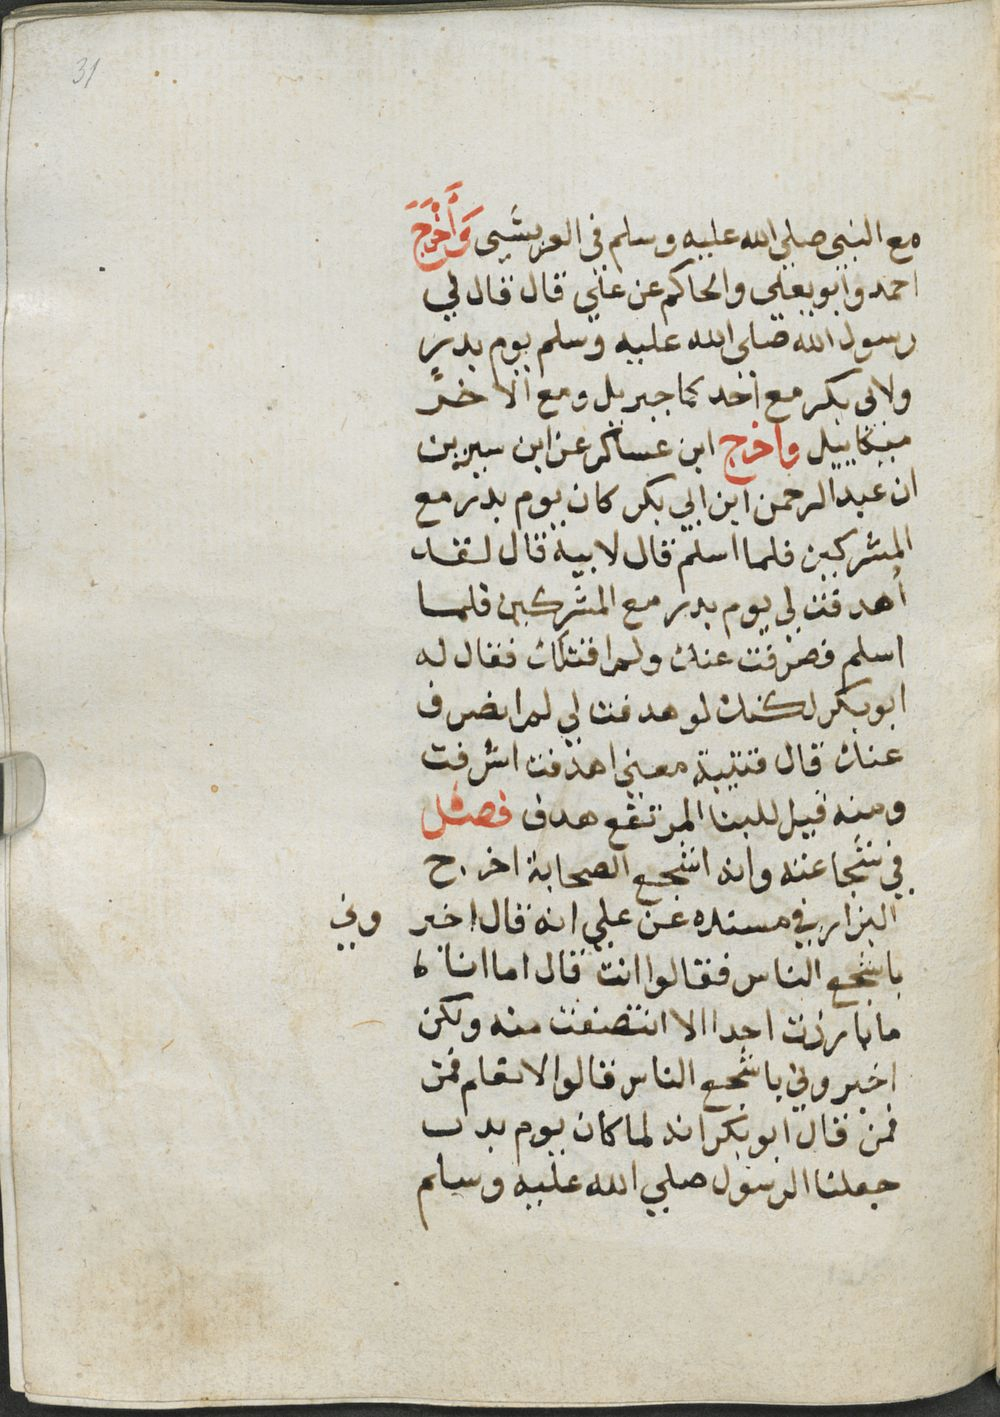 31
مع النبي صلي الله عليه وسلم في العريش وَأَخْرَجَ
احمد وابو يعلي والحاكم عن علي قال قال لي
رسول الله صلي الله عليه وسلم يوم بدر
ولابي بكر مع احد كما جبريل ومع الاخر
ميكاييل واخرج ابن عساكر عن ابن سيرين
ان عبد الرحمن ابن ابي بكر كان يوم بدر مع
المشركين فلما اسلم قال لابيه قال لقد
أهدفت لي يوم بدر مع المشركين فلما
اسلم فصرفت عنك ولم اقتلك فقال له
ابو بكر لكنك لو هدفت لي لم انصرف
عنك قال قتيبة معني اهدفت اشرفت
ومنه قيل للبنا المرتفع هدف فصل
في شجاعته وانه اشجع الصحابة اخرج
البزار في مسنده عن علي انه قال اخبر وني
باشجع الناس فقالوا انت قال اما انا
ما بارزت احدا الا انتصفت منه ولكن
اخبروني باشجع الناس قالوا لا نعلم فمن
فمن قال ابو بكر انه لما كان يوم بدر
جعلنا الرسول صلي الله عليه وسلم